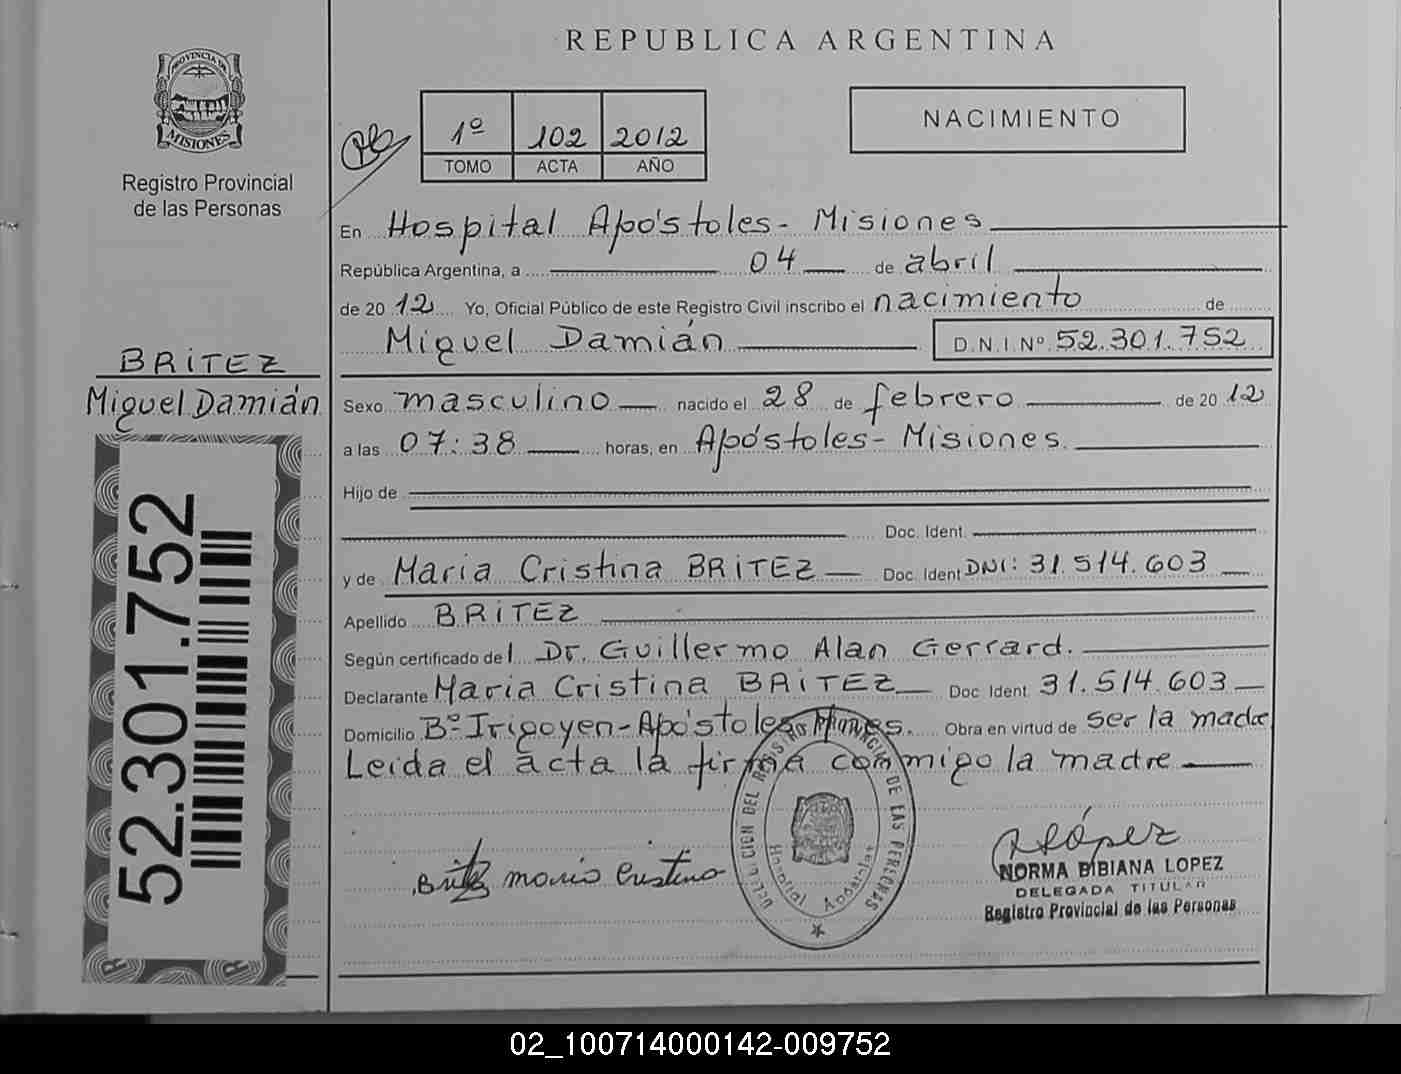 REPUBLICA ARGENTINA
PROVINCIA DE
MISIONES
Registro Provincial
de las Personas
1º 102 2012
TOMO ACTA AÑO
NACIMIENTO
En Hospital Apóstoles - Misiones
República Argentina, a 04 de abril
de 2012 Yo, Oficial Público de este Registro Civil inscribo el nacimiento de
Miguel Damián D.N.I. Nº 52.301.752
BRITEZ
Miguel Damián
52.301.752
Sexo masculino nacido el 28 de febrero de 2012
a las 07:38 horas, en Apóstoles - Misiones
Hijo de
Doc. Ident.
y de Maria Cristina BRITEZ Doc. Ident DNI: 31.514.603
Apellido BRITEZ
Según certificado del Dr. Guillermo Alan Gerrard.
Declarante Maria Cristina BRITEZ Doc. Ident. 31.514.603
Domicilio Bº Irigoyen - Apóstoles Mnes. Obra en virtud de ser la madre
Leida el acta la firma conmigo la madre
Britez Maria Cristina
DELEGACION DEL REGISTRO PROVINCIAL DE LAS PERSONAS
Hospital Apóstoles
NLópez
NORMA BIBIANA LOPEZ
DELEGADA TITULAR
Registro Provincial de las Personas
02_100714000142-009752